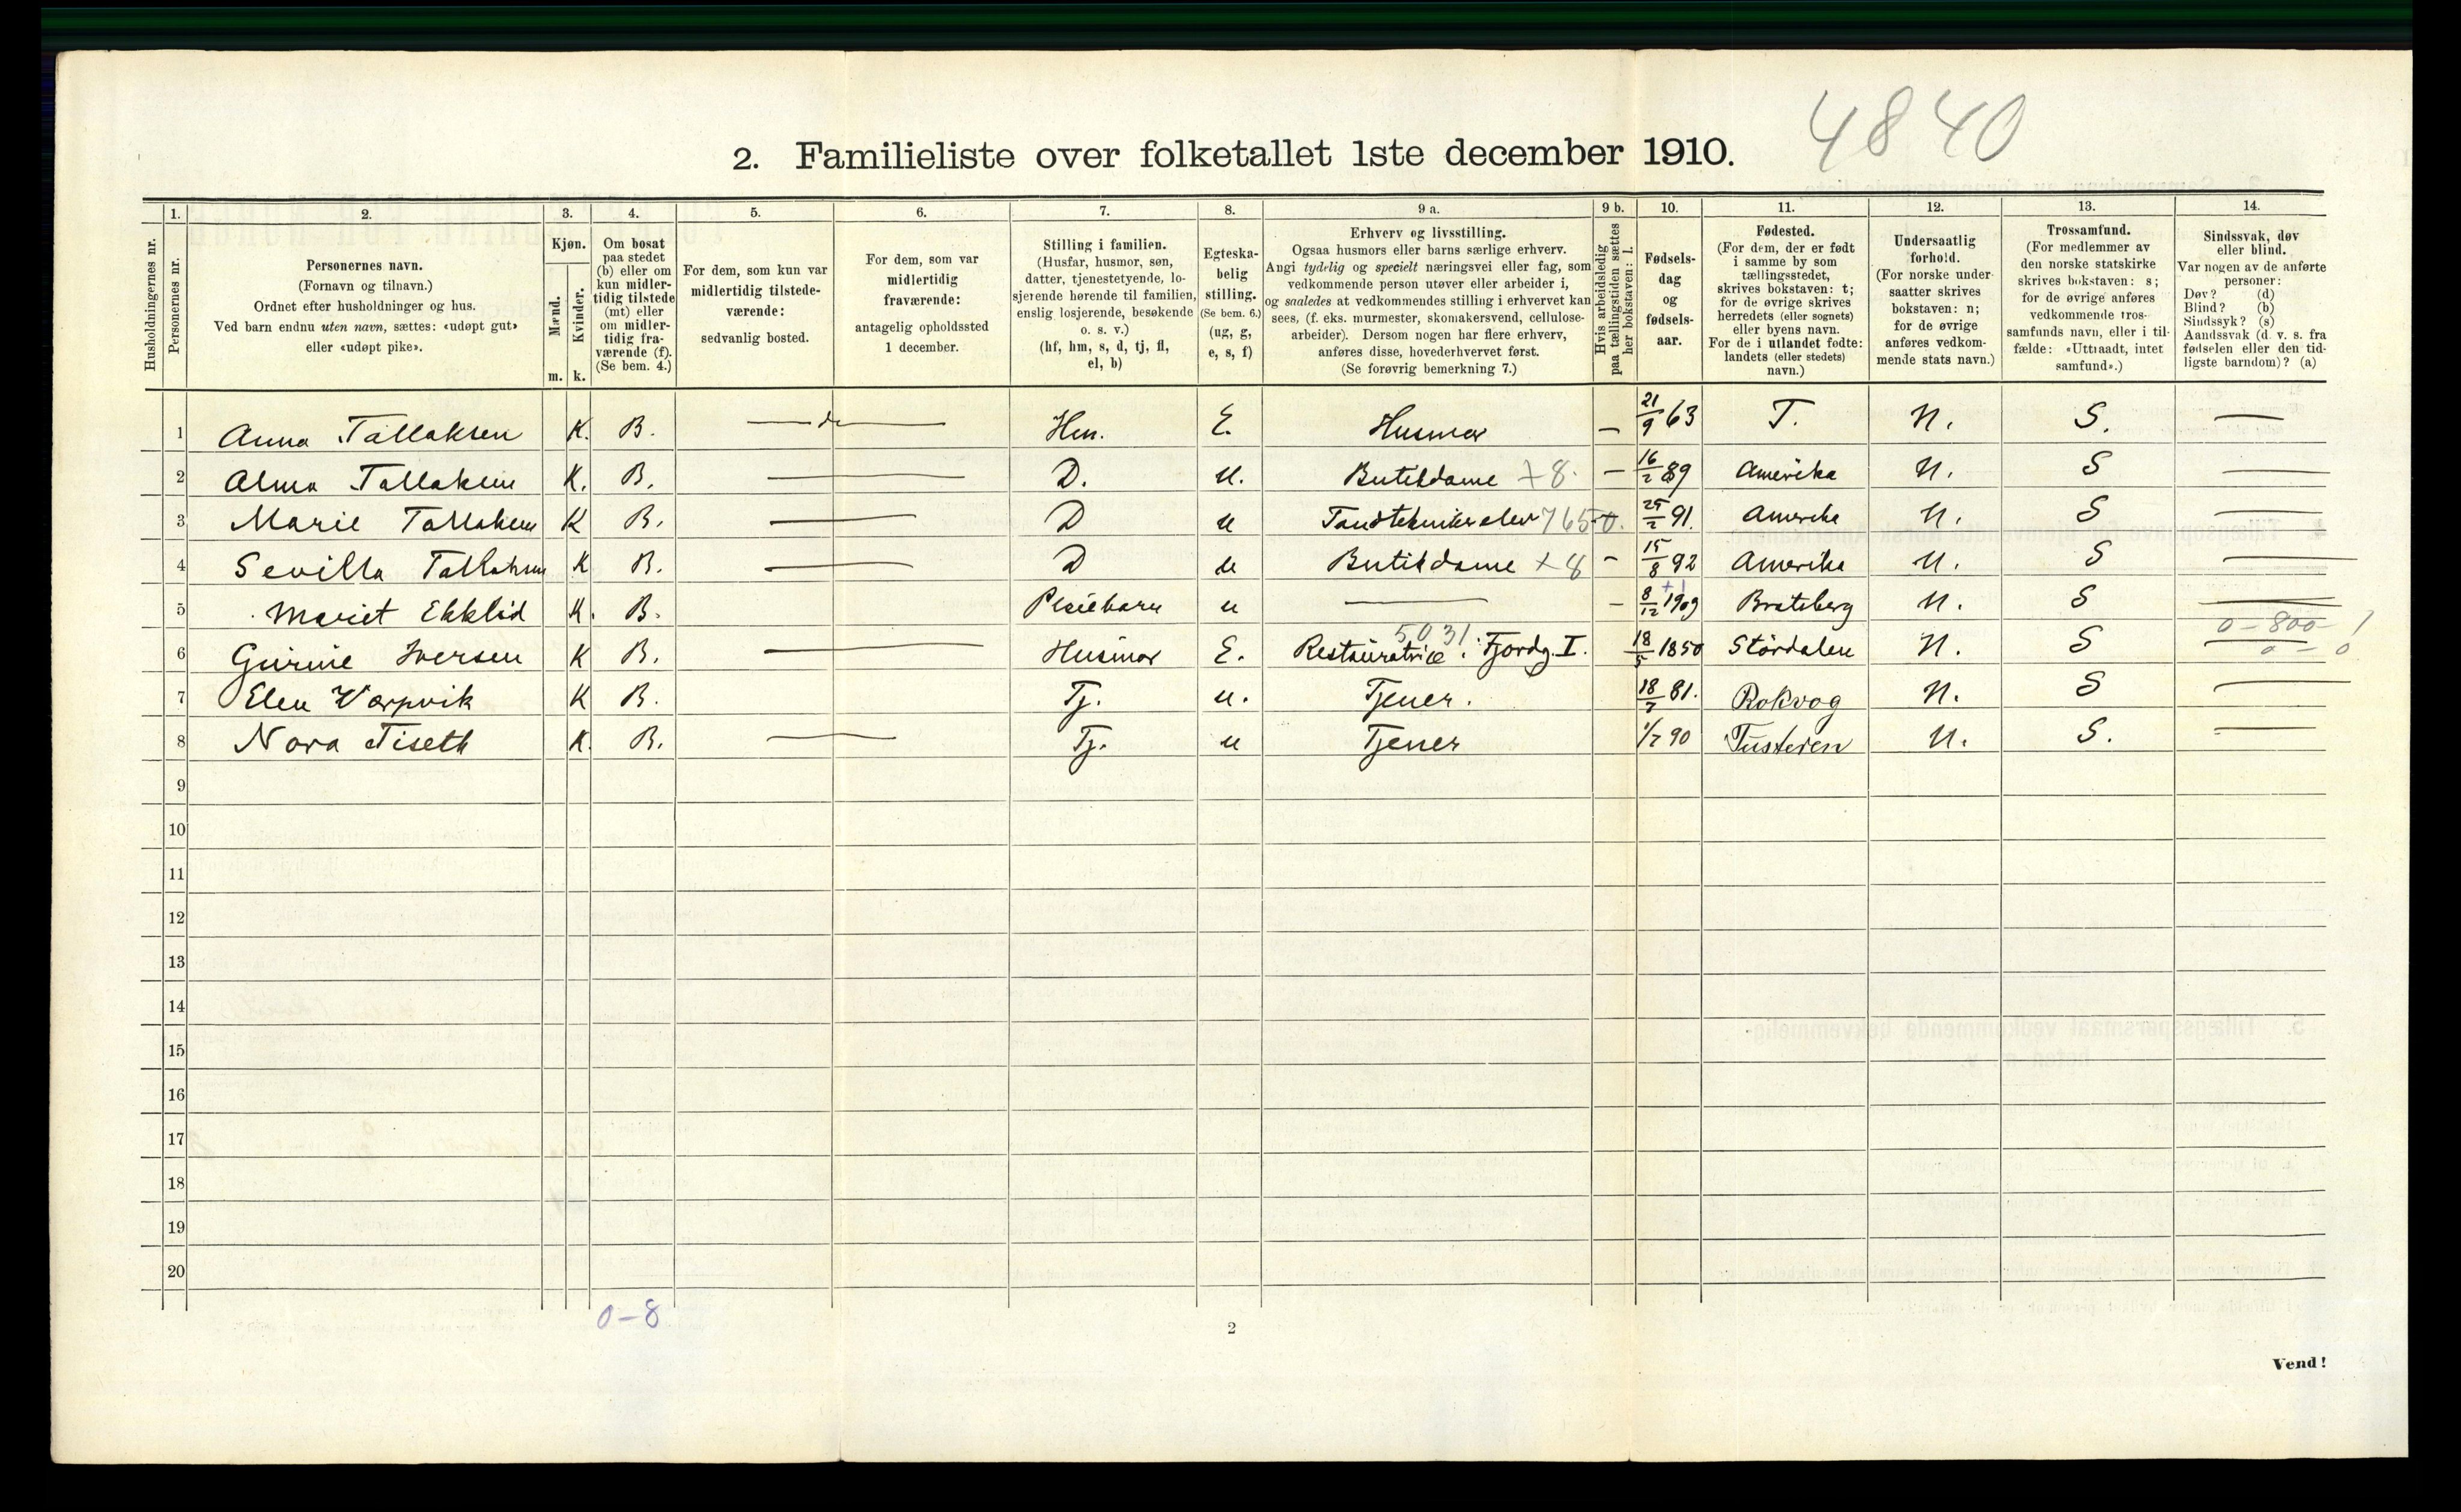 4840
2. Familieliste over folketallet 1ste december 1910.
Husholdningernes nr.
1. 2. 3. 4. 5. 6. 7. 8. 9 a. 9 b. 10. 11. 12. 13. 14.
Personernes nr.
Personernes navn.
(Fornavn og tilnavn.)
Ordnet efter husholdninger og hus.
Ved barn endnu uten navn, sættes: «udøpt gut»
eller «udøpt pike».
Kjøn.
Mænd.
Kvinder.
m. k.
Om bosat
paa stedet
(b) eller om
kun midler-
tidig tilstede
(mt) eller
om midler-
tidig fra-
værende (f).
(Se bem. 4.)
For dem, som kun var
midlertidig tilstede-
værende:
sedvanlig bosted.
For dem, som var
midlertidig
fraværende:
antagelig opholdssted
1 december.
Stilling i familien.
(Husfar, husmor, søn,
datter, tjenestetyende, lo-
sjerende hørende til familien,
enslig losjerende, besøkende
o. s. v.)
(hf, hm, s, d, tj, fl,
el, b)
Egteska-
belig
stilling.
(Se bem. 6.)
(ug, g,
e, s, f)
Erhverv og livsstilling.
Ogsaa husmors eller barns særlige erhverv.
Angi tydelig og specielt næringsvei eller fag, som
vedkommende person utøver eller arbeider i,
og saaledes at vedkommendes stilling i erhvervet kan
sees, (f. eks. murmester, skomakersvend, cellulose-
arbeider). Dersom nogen har flere erhverv,
anføres disse, hovederhvervet først.
(Se forøvrig bemerkning 7.)
Hvis arbeidsledig
paa tællingstiden sættes
her bokstaven: l.
Fødsels-
dag
og
fødsels-
aar.
Fødested.
(For dem, der er født
i samme by som
tællingsstedet,
skrives bokstaven: t;
for de øvrige skrives
herredets (eller sognets)
eller byens navn.
For de i utlandet fødte:
landets (eller stedets)
navn.)
Undersaatlig
forhold.
(For norske under-
saatter skrives
bokstaven: n;
for de øvrige
anføres vedkom-
mende stats navn.)
Trossamfund.
(For medlemmer av
den norske statskirke
skrives bokstaven: s;
for de øvrige anføres
vedkommende tros-
samfunds navn, eller i til-
fælde: «Uttraadt, intet
samfund».)
Sindssvak, døv
eller blind.
Var nogen av de anførte
personer:
Døv? (d)
Blind? (b)
Sindssyk? (s)
Aandssvak (d. v. s. fra
fødselen eller den tid-
ligste barndom)? (a)
1 Anna Tallaksen K. B. — Hm. E. Husmor — 21/9 63 T. N. S. —
2 Alma Tallaksen K. B. — D. u. Butikdame +8. — 16/2 89 Amerika N. S —
3 Marie Tallaksen K B. — D u Tandteknikerelev 7650. 25/2 91. Amerika N. S —
4 Sevilla Tallaksen K B. — D u Butikdame +8 — 15/8 92 Amerika N. S —
5 Mariet Ekklid K. B. Pleiebarn u — — 8/12 1909 Bratsberg N. S —
5031 0-800- 1
6 Gurine Iversen K B. — Husmor E. Restauratrice. Fjordg. I. 18/5 1850 Størdalen N. S — 0-0
7 Elen Varpvik K B. Tj. u. Tjener. 18/7 81. Rokvog N. S —
8 Nora Tiseth K. B. — Tj. u Tjener 1/7 90 Tusteren N. S. —
9
10
11
12
13
14
15
16
17
18
19
20
0-8
2
Vend!